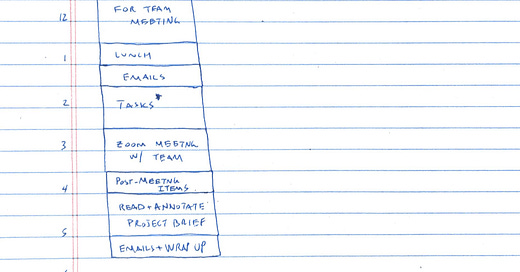 12
FOR TEAM
MEETING
1
LUNCH
EMAILS
2
TASKS*
3
ZOOM MEETING
W/ TEAM
POST-MEETING
ITEMS
4
READ+ANNOTATE
PROJECT BRIEF
5
EMAILS+WRAP UP